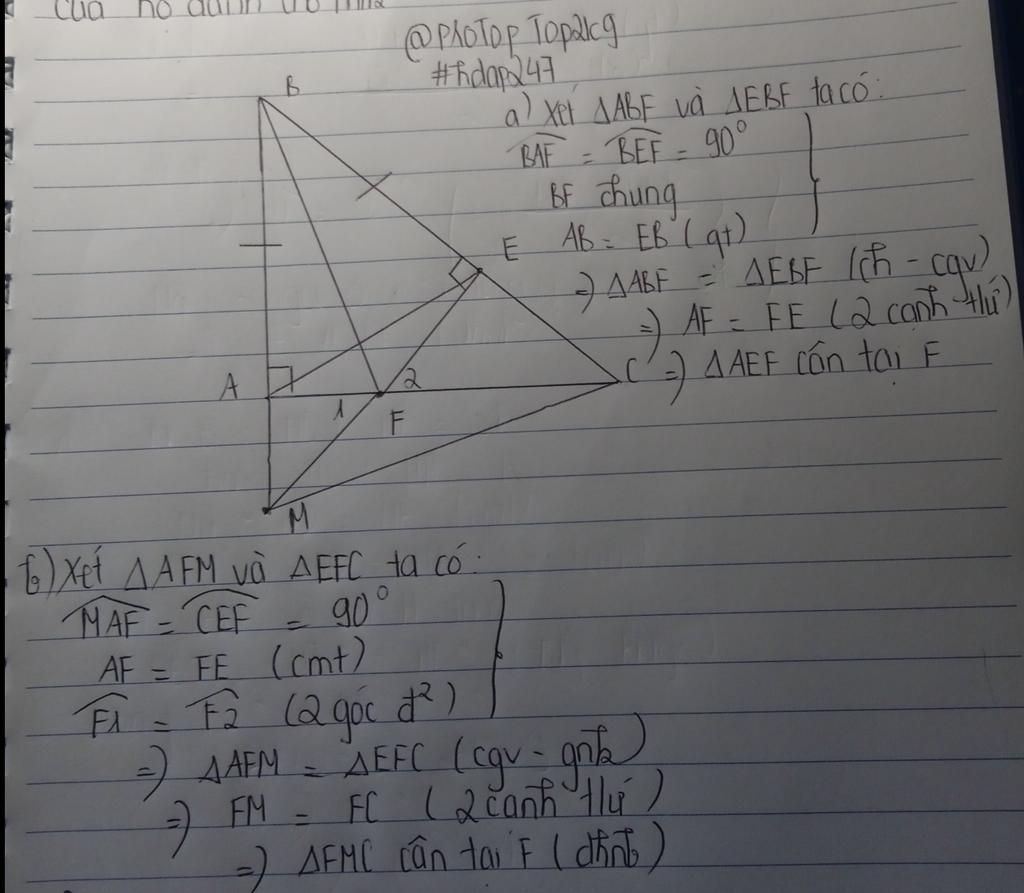 của nó
@PhoTop Top2kg
#hdap247
B
a) Xét ΔABF và ΔEBF ta có:
BAF = BEF = 90°
BF chung
E
AB = EB (gt)
=) ΔABF = ΔEBF (ch - cgv)
=) AF = FE (2 cạnh tlứ)
A
2
C
=) ΔAEF cân tại F
1
F
M
b) Xét ΔAFM và ΔEFC ta có:
MAF = CEF = 90°
AF = FE (cmt)
F1 = F2 (2 góc đ²)
=) ΔAFM = ΔEFC (cgv - gnk)
=) FM = FC (2 cạnh tlứ)
=) ΔFMC cân tại F (dhnb)